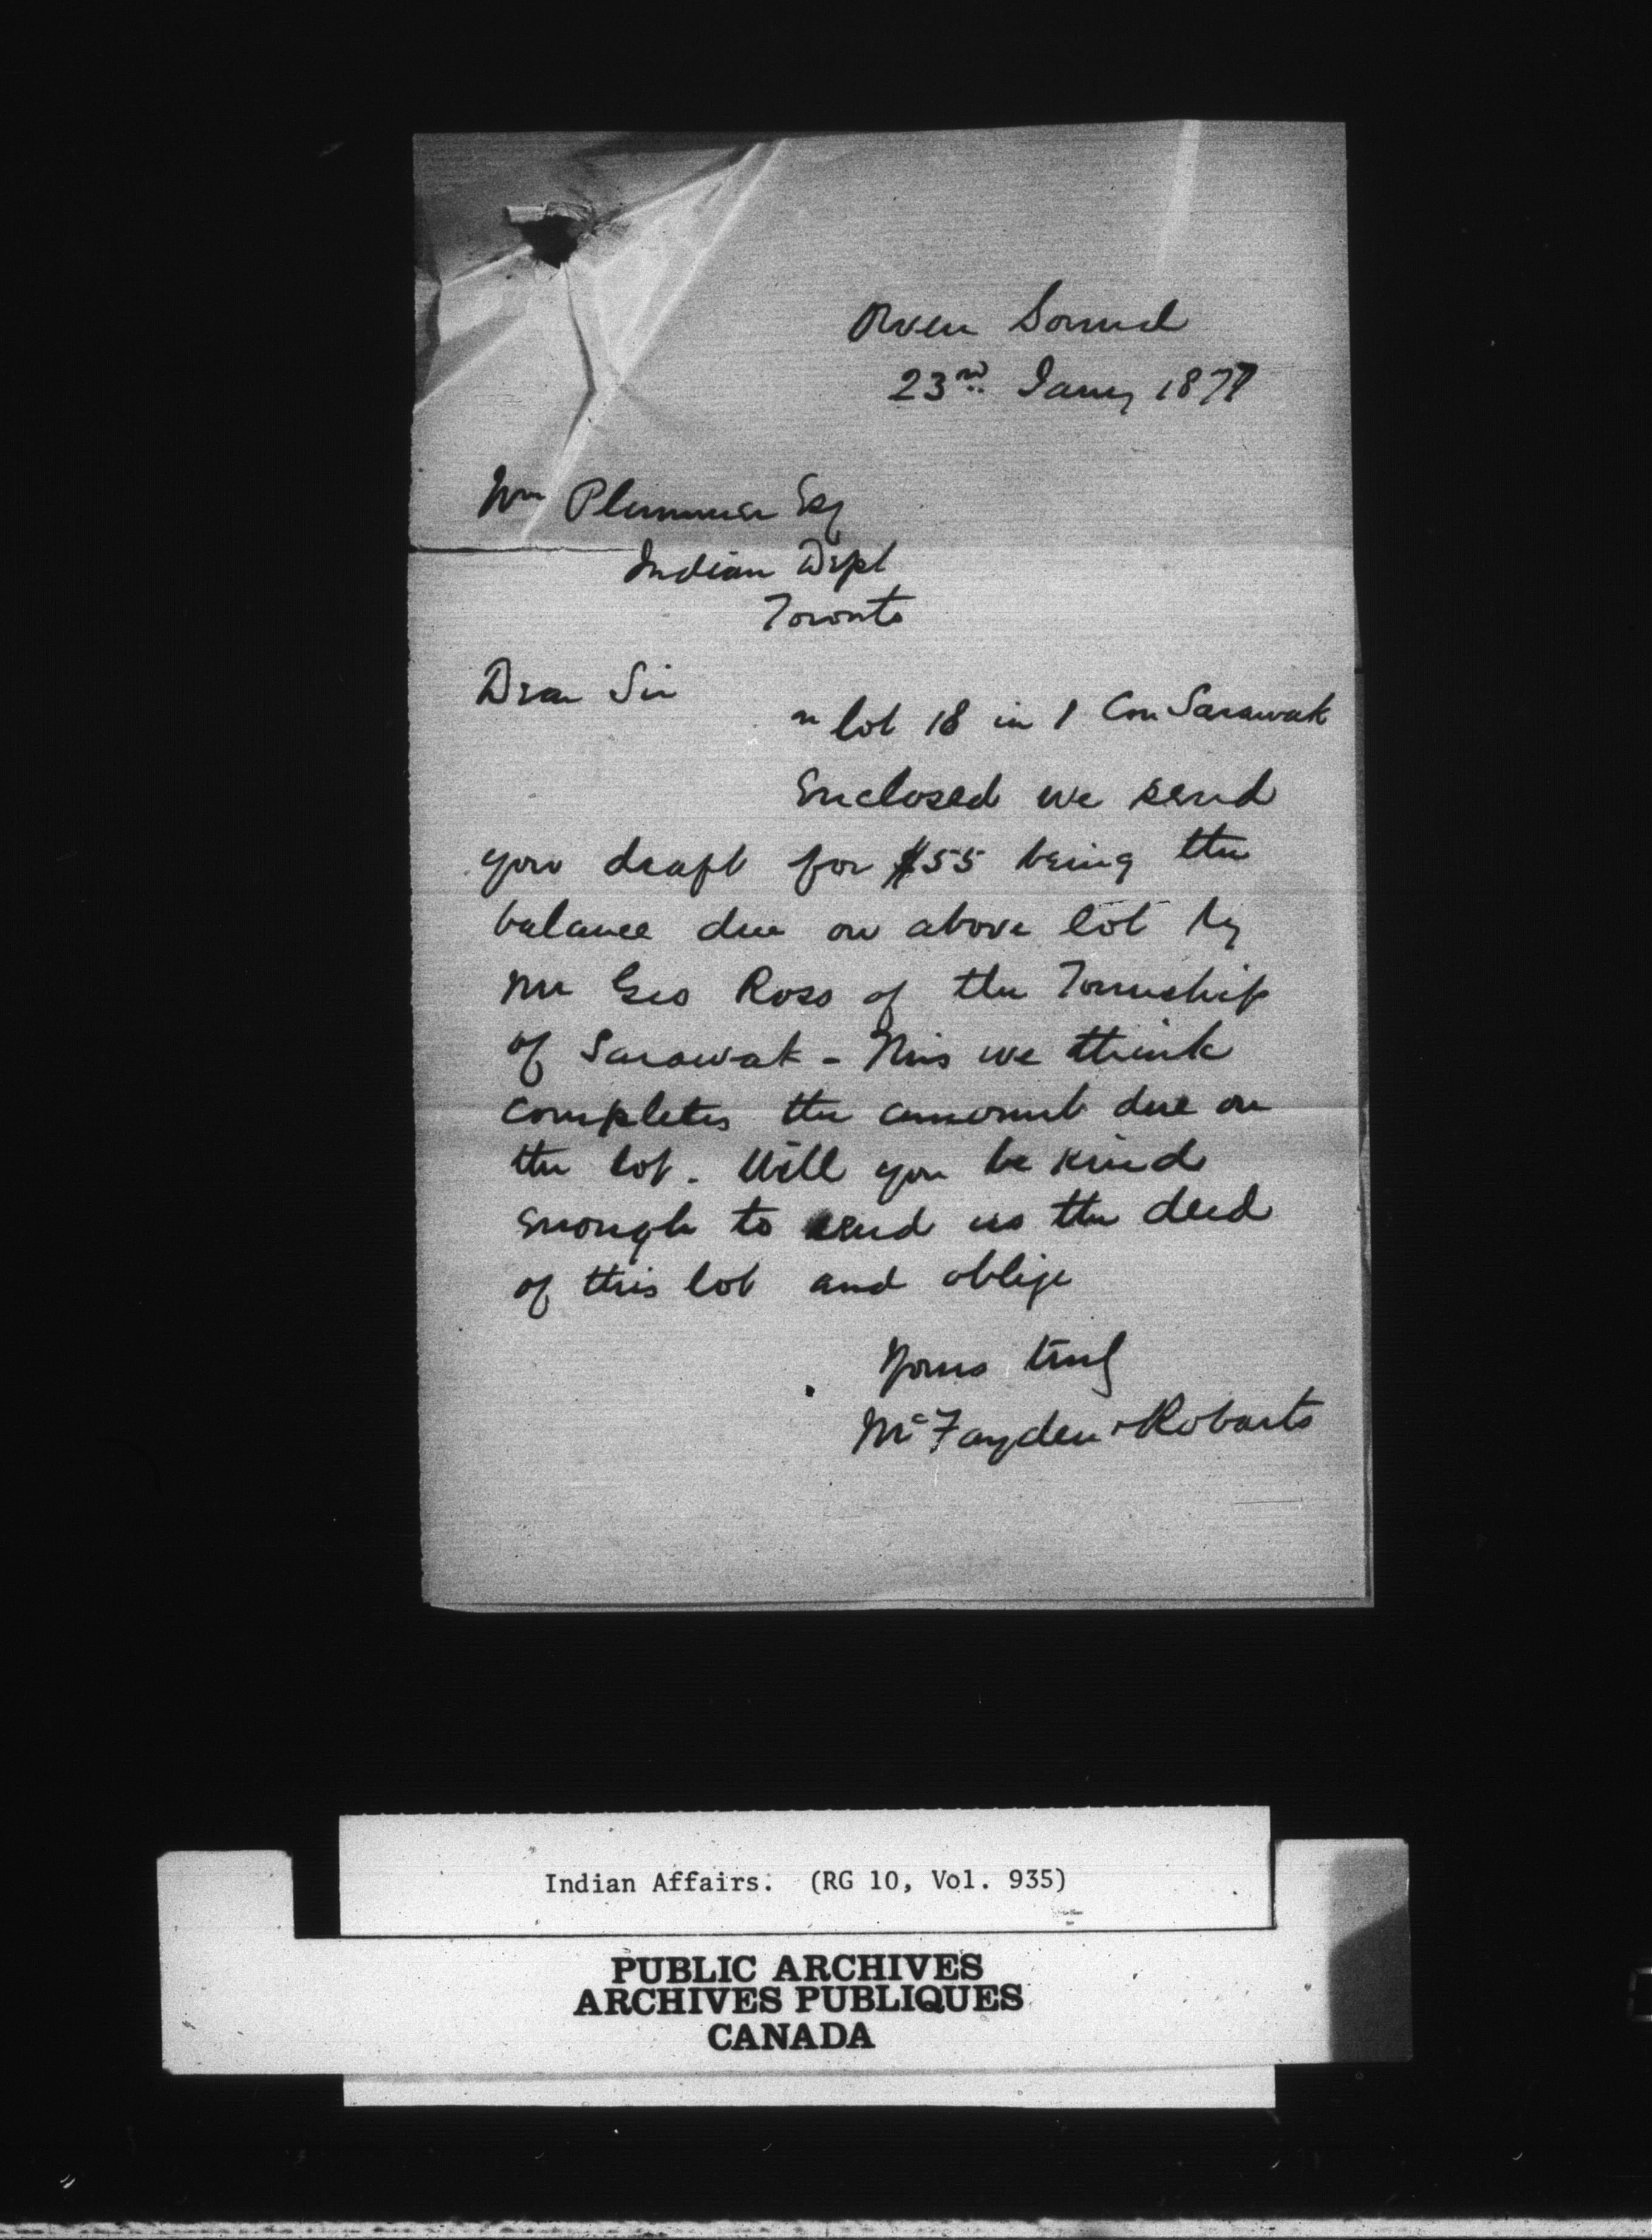 Owen Sound
23rd Jany 1877
Wm Plummer Esq
Indian Dept
Toronto
Dear Sir
re lot 18 in 1 Con Sarawak
Enclosed we send
you draft for $55 being the
balance due on above lot by
Mr Geo Ross of the Township
of Sarawak - This we think
completes the amount due on
the lot. Will you be kind
enough to send us the deed
of this lot and oblige
Yours truly
McFayden & Robarts
Indian Affairs. (RG 10, Vol. 935)
PUBLIC ARCHIVES
ARCHIVES PUBLIQUES
CANADA